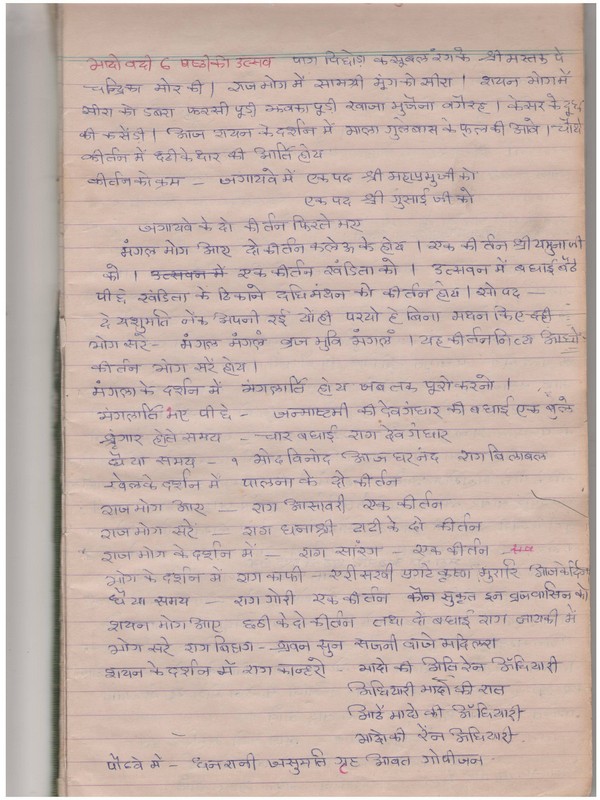 भादो वदी 6 षष्ठी को उत्सव पाग पिछोड़ा कसूबल रंग के श्री मस्तक पे
चन्द्रिका मोर की। राजभोग में सामग्री मूंग को सीरा। शयन भोग में
सीरा को डबरा फरसी पूड़ी झझका पूड़ी खाजा मुजेना वगैरह। केसर के दूध
की कसेंडी। आज शयन के दर्शन में माला गुलबास के फूल की आवे। चौथे
कीर्तन में दही के धार की आर्ति होय
कीर्तन को क्रम - जगायवे में एक पद श्री महाप्रभुजी को
एक पद श्री गुसाईजी को
जगायवे के दो कीर्तन फिरते भए
मंगल भोग आए दो कीर्तन कलेऊ के होय। एक कीर्तन श्री यमुनाजी
को। उत्सवन में एक कीर्तन खंडिता को। उत्सवन में बधाई बैठे
पीछे खंडिता के ठिकाने दधिमंथन को कीर्तन होय। सो पद —
दे यशुमति नेक अपनी रई योंही परयो है बिना मथन किए दही
भोग सरे - मंगल मंगलं व्रज भुवि मंगलं। यह कीर्तन नित्य आधो
कीर्तन भोग सरें होय।
मंगला के दर्शन में मंगलार्ति होय जब तक पूरो करनो।
मंगलार्ति भए पीछे - जन्माष्टमी की देवगंधार की बधाई एक
श्रृंगार होते समय - चार बधाई राग देवगंधार
धैया समय - १ मोद विनोद आज घर नंद राग बिलाबल
खेल के दर्शन में पालना के दो कीर्तन
राजभोग आए — राग आसावरी एक कीर्तन
राजभोग सरें — राग धनाश्री ढाढी के दो कीर्तन
राजभोग के दर्शन में - राग सारंग - एक कीर्तन
भोग के दर्शन में राग काफी - एरी सखी प्रगटे कृष्ण मुरारि
धैया समय - राग गोरी एक कीर्तन कौन सुकृत इन व्रजवासिन को
शयन भोग आए छठी के दो कीर्तन तथा दो बधाई राग जायकी में
भोग सरे राग बिहाग - श्रवन सुन सजनी बाजे मादेलरा
शयन के दर्शन में राग कान्हरो - भादो की अति रेन अँधियारी
अंधियारी भादो की रात
आठें भादो की अँधियारी
भादो की रेंन अंधियारी.
पोढवे में - धनरानी जसुमति गृह आवत गोपीजन